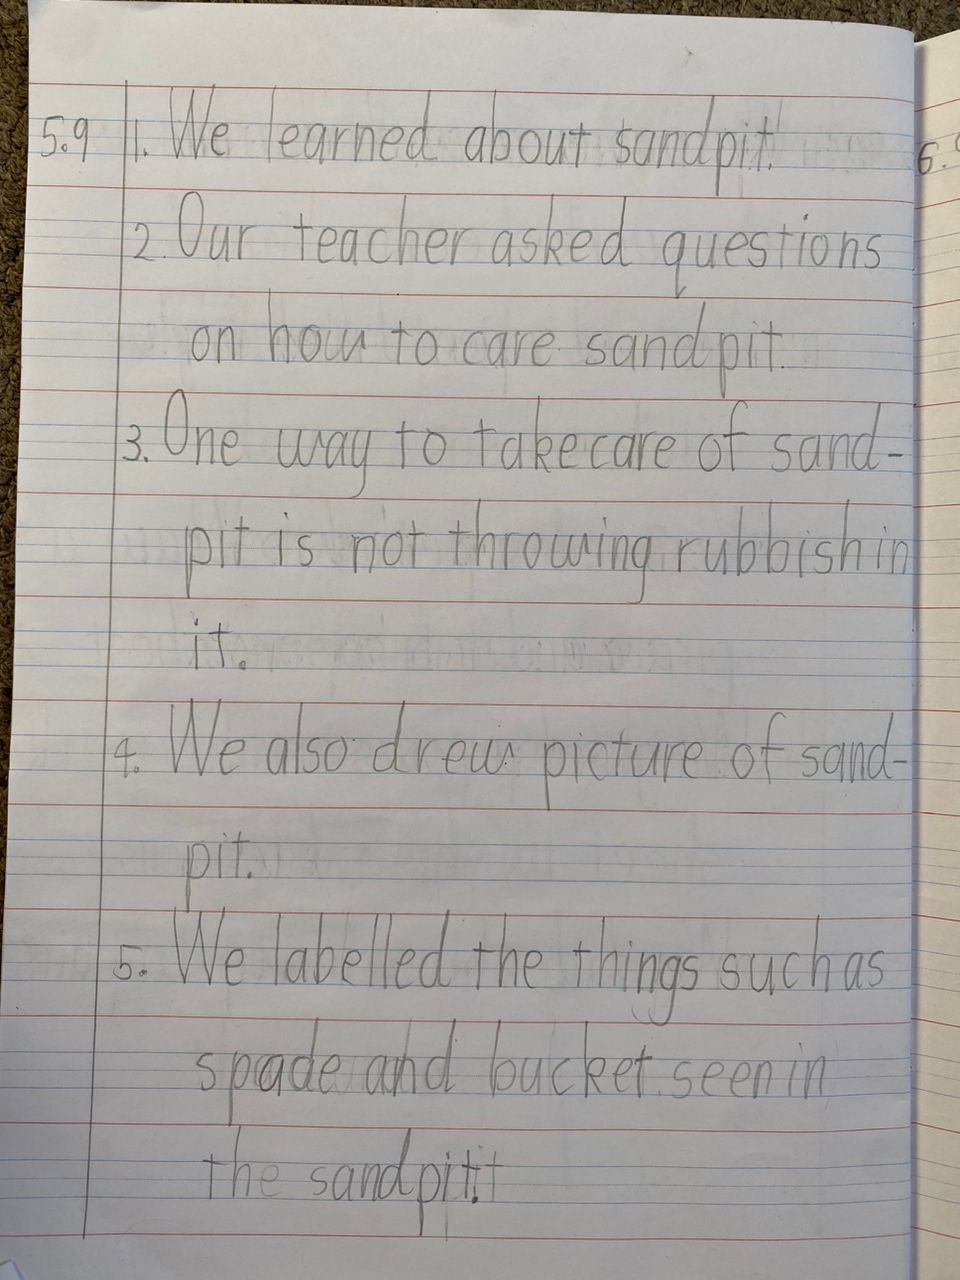 5.9 1. We learned about sandpit.
2. Our teacher asked questions
on how to care sandpit.
3. One way to take care of sand-
pit is not throwing rubbish in
it.
4. We also drew picture of sand-
pit.
5. We labelled the things such as
spade and bucket seen in
the sandpit.
6.